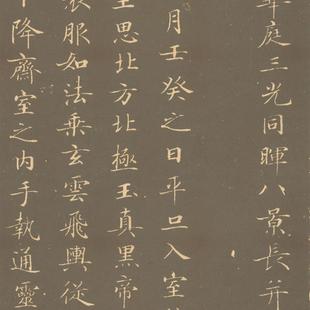 庭三光同暉八景長并
月壬癸之日平旦入室
思北方北極玉真黑帝
服如法乘玄雲飛輿從
降齋室之內手執通靈